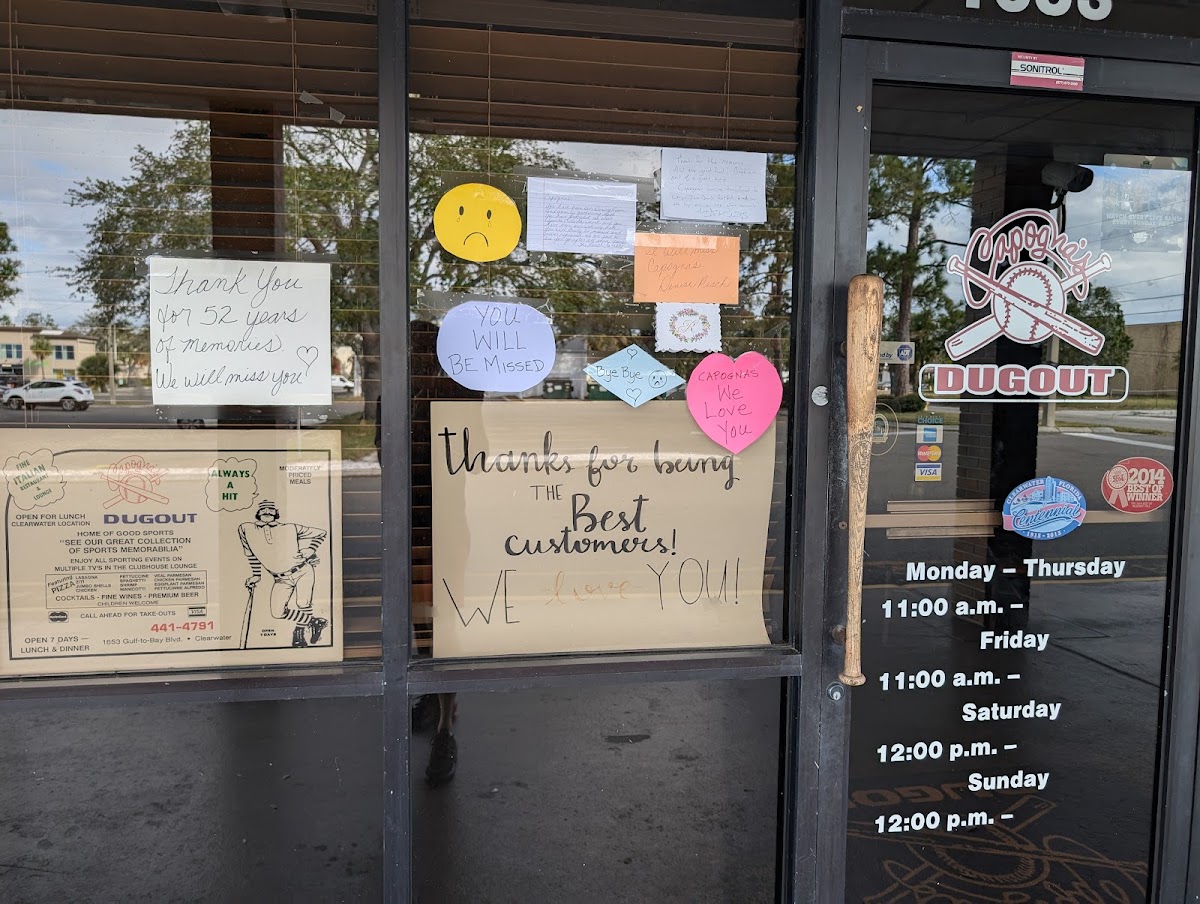 SONITROL
Thank You
for 52 years
of memories.
We will miss you
YOU
WILL
BE MISSED
Capognas
Bye Bye
CAPOGNAS
We
Love
You
thanks for being
THE
Best
customers!
WE love YOU!
FINE
ITALIAN
RESTAURANT
& LOUNGE
Capogna's
DUGOUT
ALWAYS
A
HIT
MODERATELY
PRICED
MEALS
OPEN FOR LUNCH
CLEARWATER LOCATION
HOME OF GOOD SPORTS
"SEE OUR GREAT COLLECTION
OF SPORTS MEMORABILIA"
ENJOY ALL SPORTING EVENTS ON
MULTIPLE TV'S IN THE CLUBHOUSE LOUNGE
Featuring
PIZZA
LASAGNA
JUMBO SHELLS
CHICKEN
FETTUCCINE
SPAGHETTI
SHRIMP
MANICOTTI
VEAL PARMESAN
CHICKEN PARMESAN
EGGPLANT PARMESAN
FETTUCINE ALFREDO
COCKTAILS - FINE WINES - PREMIUM BEER
CHILDREN WELCOME
CALL AHEAD FOR TAKE-OUTS
VISA
441-4791
OPEN 7 DAYS —
LUNCH & DINNER
1653 Gulf-to-Bay Blvd. • Clearwater
OPEN
7 DAYS
Capogna's
DUGOUT
ADT
VISA
CLEARWATER, FLORIDA
Centennial
1915 - 2015
2014
BEST OF
WINNER
Monday – Thursday
11:00 a.m. –
Friday
11:00 a.m. –
Saturday
12:00 p.m. –
Sunday
12:00 p.m. –